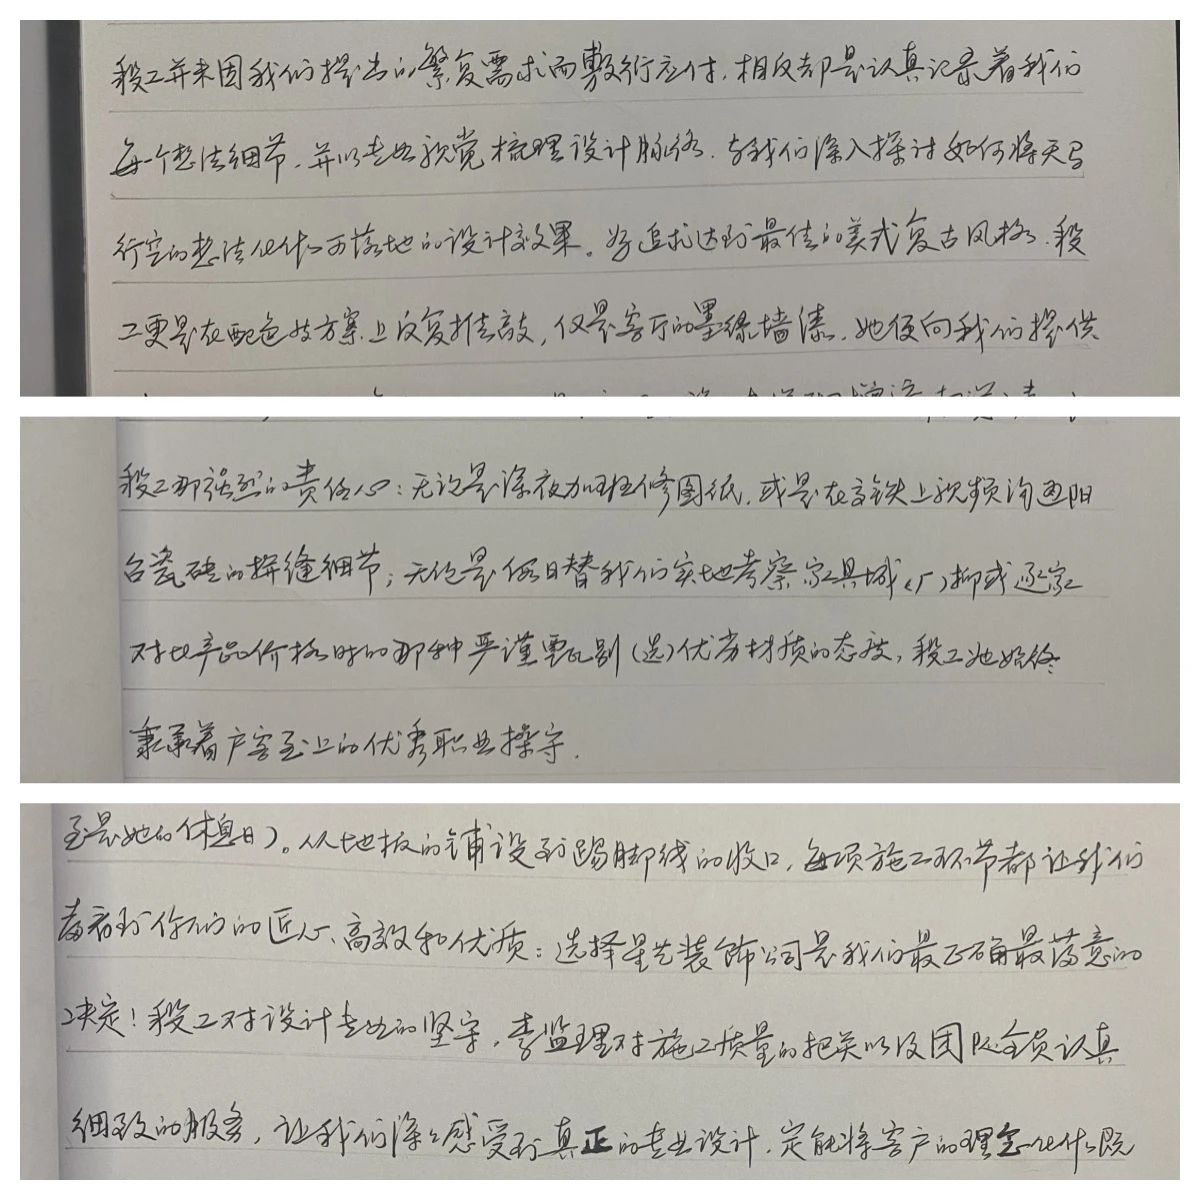 段工并未因我们提出的繁复需求而敷衍应付,相反却是认真记录着我们
每一个想法细节,并以专业视觉梳理设计脉络,与我们深入探讨如何将天马
行空的想法化作可落地的设计效果。为追求达到最佳的美式复古风格,段
工更是在配色技方案上反复推敲,仅是客厅的墨绿墙漆,她便向我们提供
段工那强烈的责任心:无论是深夜加班修图纸,或是在高铁上视频沟通阳
台瓷砖的拼缝细节;无论是假日替我们实地考察家具城(厂)抑或逐家
对比产品价格时的那种严谨甄别(选)优劣材质的态度,段工她始终
秉承着户客至上的优秀职业操守.
至是她的休息日)。从地板的铺设到踢脚线的收口,每项施工环节都让我们
看到你们的匠心、高效和优质;选择星艺装饰公司是我们最正确最满意的
决定!段工对设计专业的坚守,李监理对施工质量的把关以及团队全员认真
细致的服务,让我们深深感受到真正的专业设计,定能将客户的理念化作既